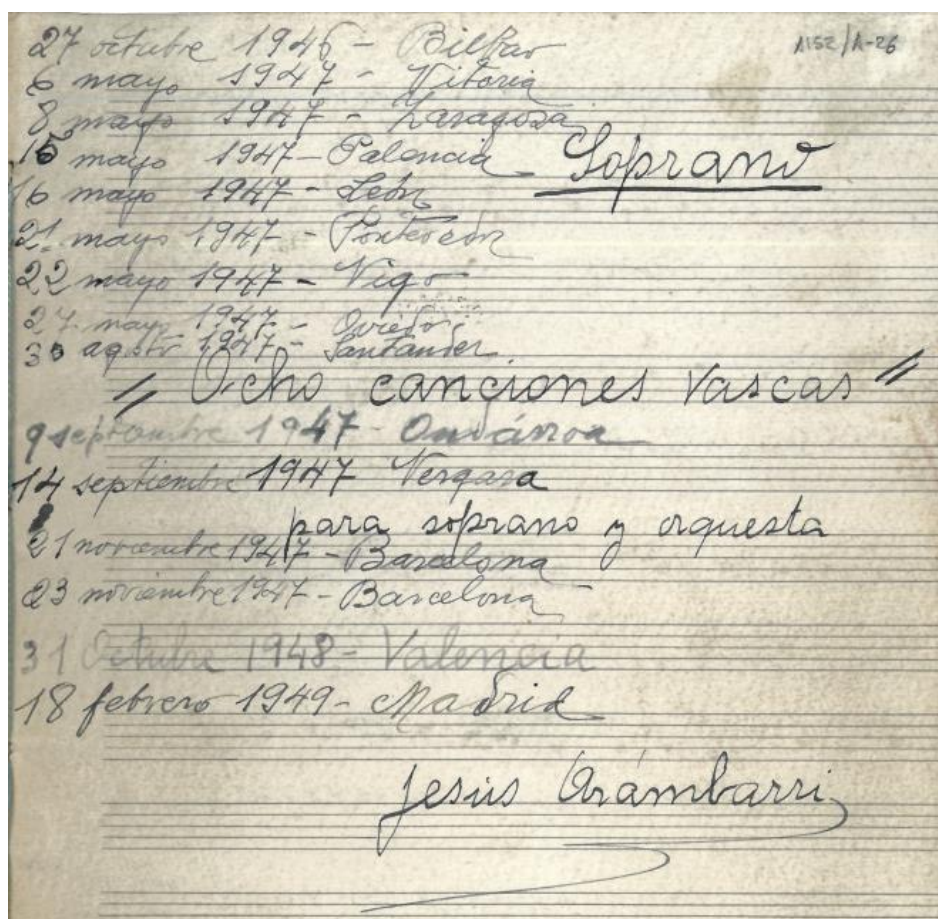 27 octubre 1946 - Bilbao
A152/A-26
6 mayo 1947 - Vitoria
8 mayo 1947 - Zaragoza
15 mayo 1947 - Palencia
Soprano
16 mayo 1947 - León
21 mayo 1947 - Pontevedra
22 mayo 1947 - Vigo
27 mayo 1947 - Oviedo
30 agosto 1947 - Santander
" Ocho canciones vascas "
9 septiembre 1947 - Ondárroa
14 septiembre 1947 Vergara
para soprano y orquesta
21 noviembre 1947 - Barcelona
23 noviembre 1947 - Barcelona
31 Octubre 1948 - Valencia
18 febrero 1949 - Madrid
Jesús Arámbarri